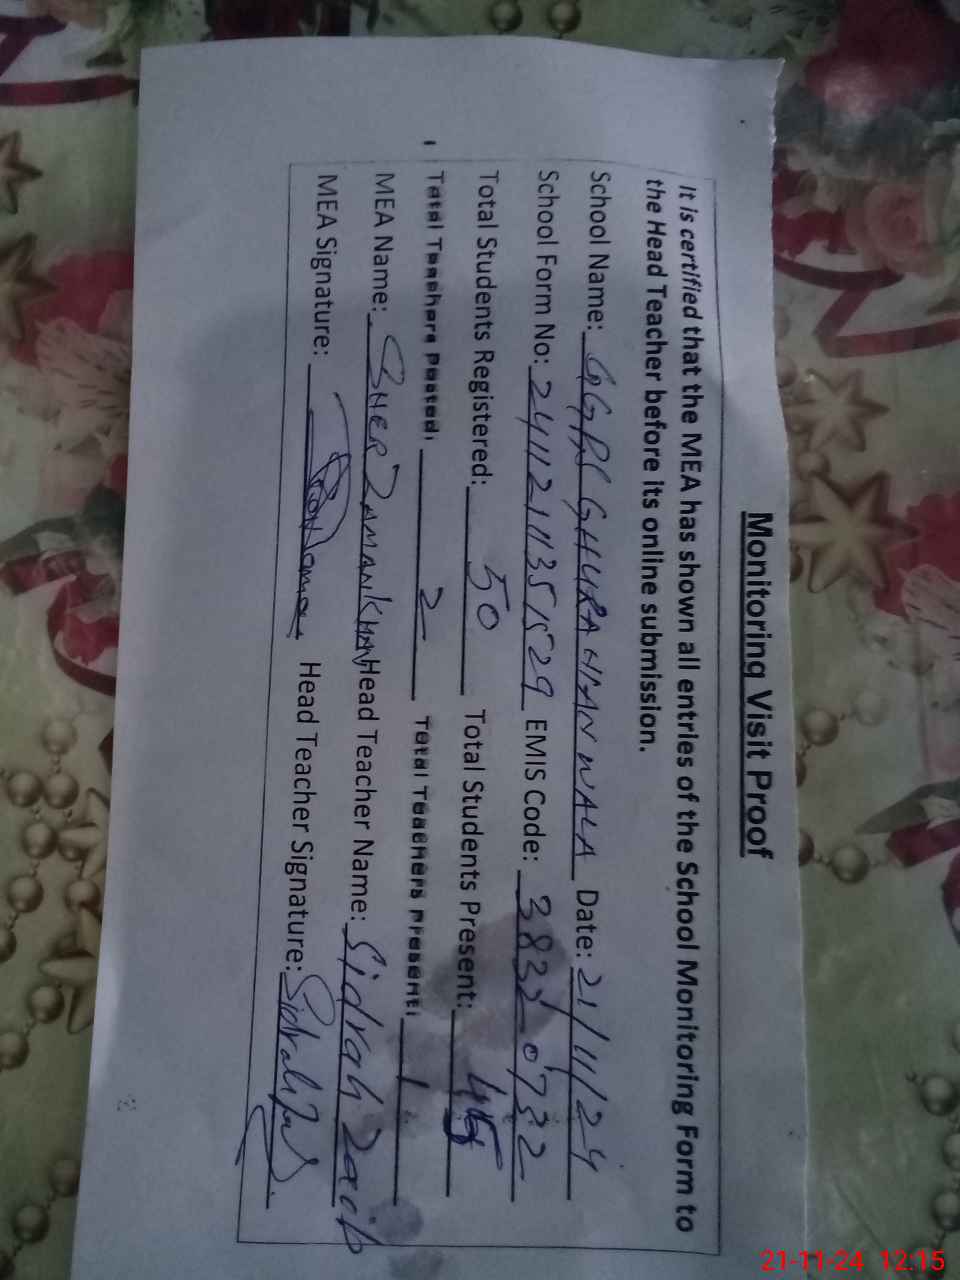 Monitoring Visit Proof
It is certified that the MEA has shown all entries of the School Monitoring Form to
the Head Teacher before its online submission.
School Name: GGPS GHURA HIAN WALA Date: 21/11/24
School Form No: 24112111351529 EMIS Code: 3832-0732
Total Students Registered: 50 Total Students Present: 45
Total Teachers Posted: 2 Total Teachers Present: 1
MEA Name: SHER ZAMAN KHAN Head Teacher Name: Sidrah Zaib
MEA Signature: Head Teacher Signature:
21-11-24 12:15